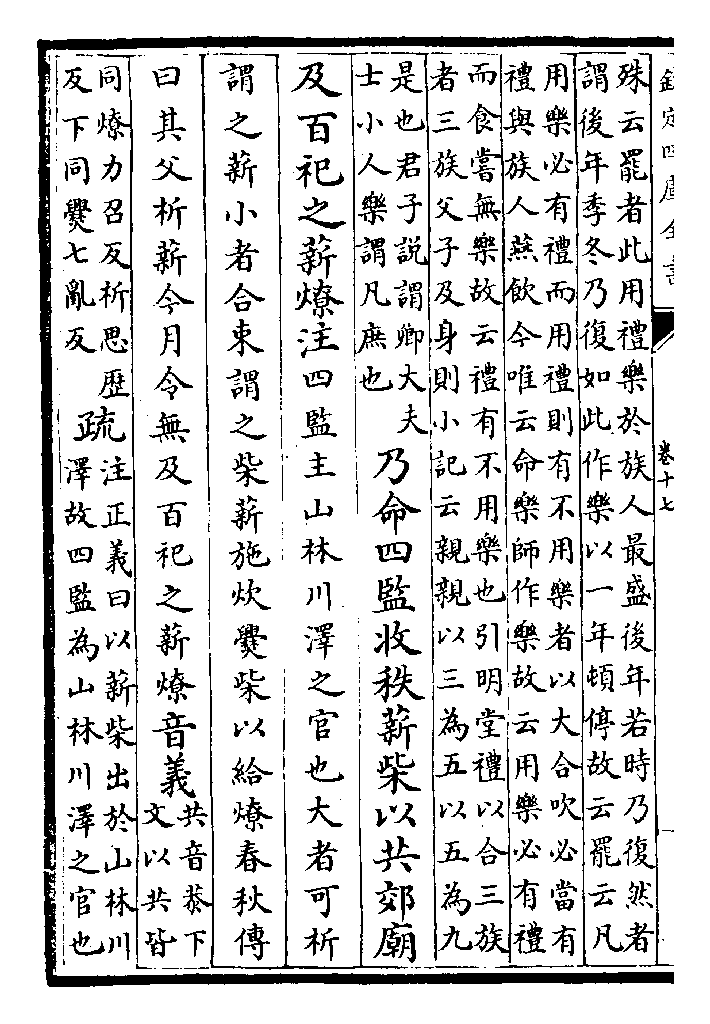 欽定四庫全書
卷十七
殊云罷者此用禮樂於族人最盛後年若時乃復然者
謂後年季冬乃復如此作樂以一年頓停故云罷云凡
用樂必有禮而用禮則有不用樂者以大合吹必當有
禮與族人燕飲今唯云命樂師作樂故云用樂必有禮
而食嘗無樂故云禮有不用樂也引明堂禮以合三族
者三族父子及身則小記云親親以三為五以五為九
是也君子說謂卿大夫
士小人樂謂凡庶也
乃命四監收秩薪柴以共郊廟
及百祀之薪燎注四監主山林川澤之官也大者可析
謂之薪小者合束謂之柴薪施炊爨柴以給燎春秋傳
曰其父析薪今月令無及百祀之薪燎音義
共音恭下
文以共皆
同燎力召反析思歴
反下同爨七亂反
疏
注正義曰以薪柴出於山林川
澤故四監為山林川澤之官也